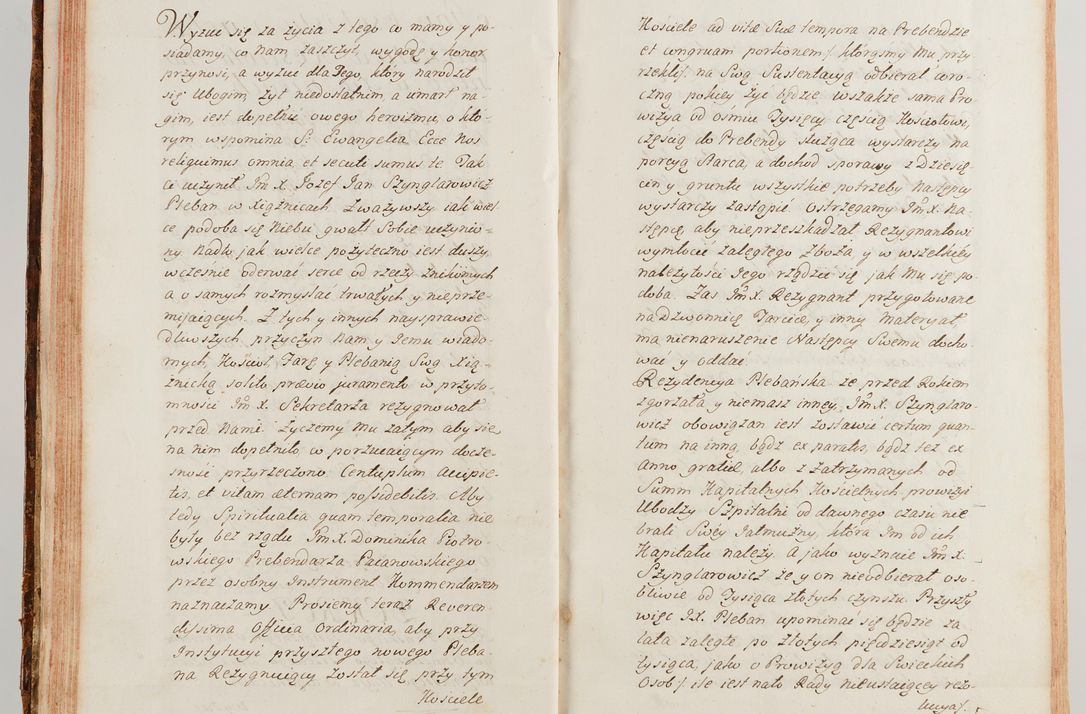 Wyzuć się za życia z tego co mamy y po=
siadamy, co Nam zaszczyt, wygodę y honor
przynosi, a wyzuć dla Tego, który narodził
się Ubogim, żył niedostatnim, a umarł na=
gim, iest dopełnić owego heroizmu, o któ=
rym wspomina S: Ewangelia Ecce Nos
reliquimus omnia et secuti sumus te Tak
ci uczynił Jm X. Jozef Jan Szynglarowicz
Pleban w Xiąznicach. Zważywszy iak wiel=
ce podoba się Niebu gwałt Sobie uczynio=
ny Nadto jak wielce pożyteczno iest duszy,
wcześnie oderwać serce od rzeczy znikomych
a o samych rozmyslać trwałych y nieprze=
mijaiących. Z tych y innych naysprawie=
dliwszych przyczyn Nam y Jemu wiado=
mych, Kościoł, Farę y Plebanią Swą Xią=
znicką solito prævio juramento w przyto=
mności Jm X. Sekretarza rezygnował
przed Nami. Życzemy Mu zatym aby się
na nim dopełniło, co porzucaiącym docze=
sność przyrzeczono. Centuplum accipie=
tis, et vitam æternam possidebitis. Aby
tedy Spiritualia quam temporalia nie
były bez rządu Jm X. Dominika Piotro=
wskiego Prebendarza Pacanowskiego
przez osobny Instrument Kommendarzem
naznaczamy Prosiemy teraz Reveren
dissima Officia Ordinaria, aby przy
Instytucyi przyszłego nowego Pleba=
na Rezygnuiący został się przy tym
Kościele
Kościele ad vitæ Suæ tempora na Prebendzie
et congruam portionem/: którąśmy Mu przy
rzekli:/ na Swą Sustentacyą odbierał coro=
czną pokiey żyć będzie wszakże sama Pro
wizya od ośmiu Tysięcy częscią Kościołowi,
częscią do Prebendy służąca wystarczy na
porcyą Starca, a dochod sporawy z Dziesię
cin y gruntu wszystkie potrzeby Następcy
wystarczy zastąpić. Ostrzegamy Jm X. Na=
stępcę aby nieprzeszkadzał Rezygnantowi
wymłócić zaległego Zboża y w wszelkiey
należytości Jego rządzić się jak Mu się po=
doba. Zas Jm X. Rezygnant przygotowane
na Dzwonnicę Tarcice, y inny Materyał,
ma nienaruszenie Następcy Swemu docho=
wać y oddać.
Rezydencya Plebańska że przed Rokiem
zgorzała y niemasz inney, Jm X. Szynglaro=
wicz obowiązan iest zostawić certum quan=
tum na inną, bądz ex paratis, bądz też ex
Anno gratiæ, albo z zatrzymanych od
Summ Kapitalnych Kościelnych prowizyi
Ubodzy Szpitalni od dawnego czasu nie
brali Swey Jałmużny, która Im od ich
Kapitału należy. A jako wyznaie Jm X.
Szynglarowicz że y on nieodbierał oso=
bliwie od Tysiąca złotych czynszu. Przyszły
więc JX. Pleban upominać się będzie za
lata zaległe po złotych pięćdziesiąt od
tysiąca, jako o Prowizyą dla Swieckich
Osob/: ile iest nato Rady nieustaiącey rezo=
lucya:/.